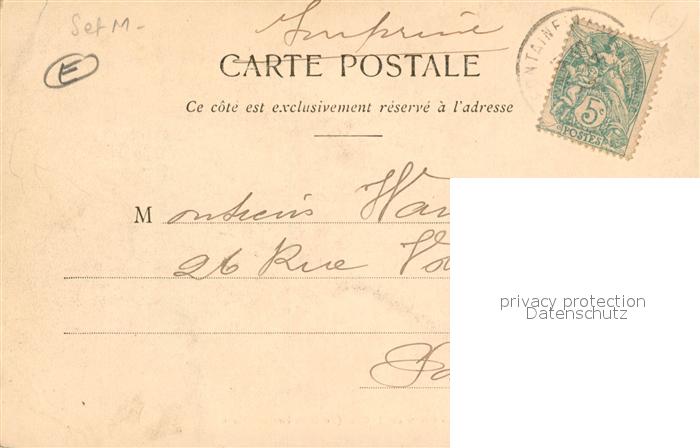 Set M-
E
Imprimé
CARTE POSTALE
Ce côté est exclusivement réservé à l'adresse
5c
POSTES
M onsieur
26 Rue
privacy protection
Datenschutz